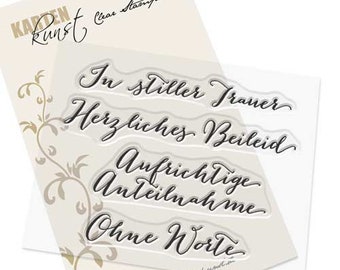 KARTEN
Kunst Clear Stamps
In stiller Trauer
Herzliches Beileid
Aufrichtige
Anteilnahme
Ohne Worte